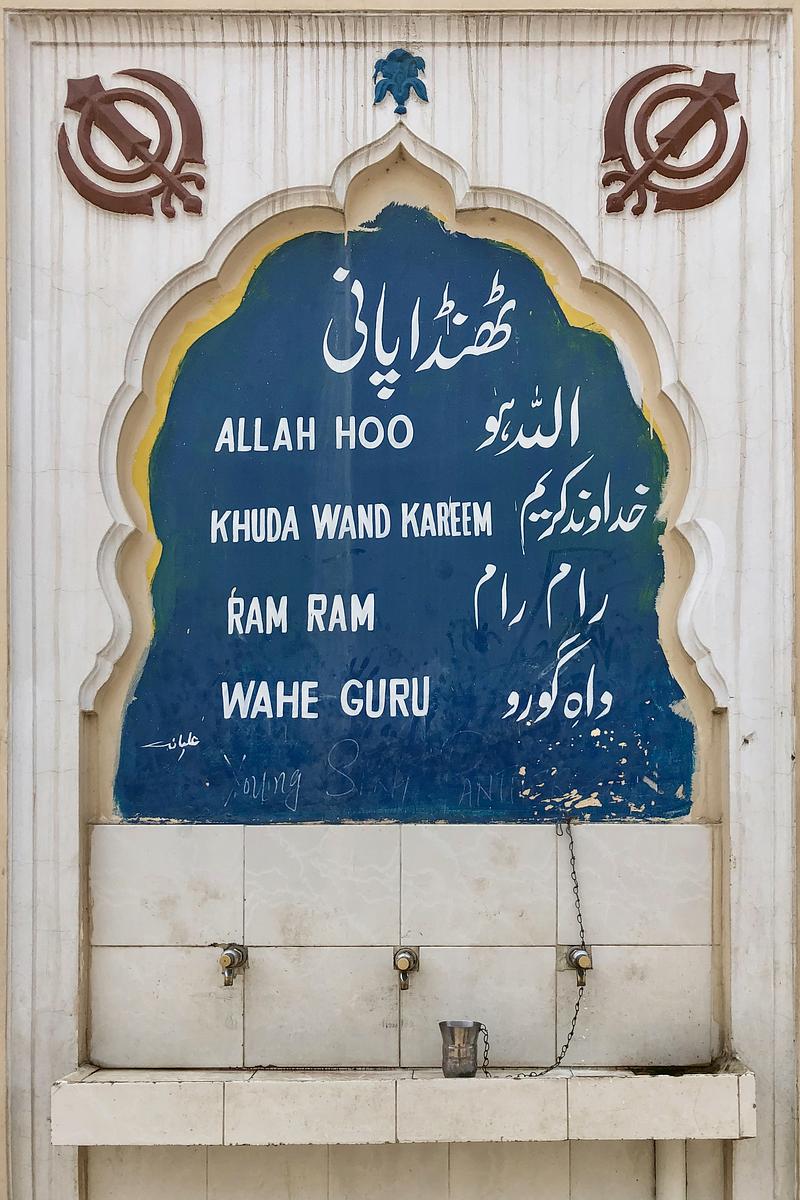 ٹھنڈا پانی
ALLAH HOO اللہ ہو
KHUDA WAND KAREEM خداوند کریم
RAM RAM رام رام
WAHE GURU واہ گورو
Young